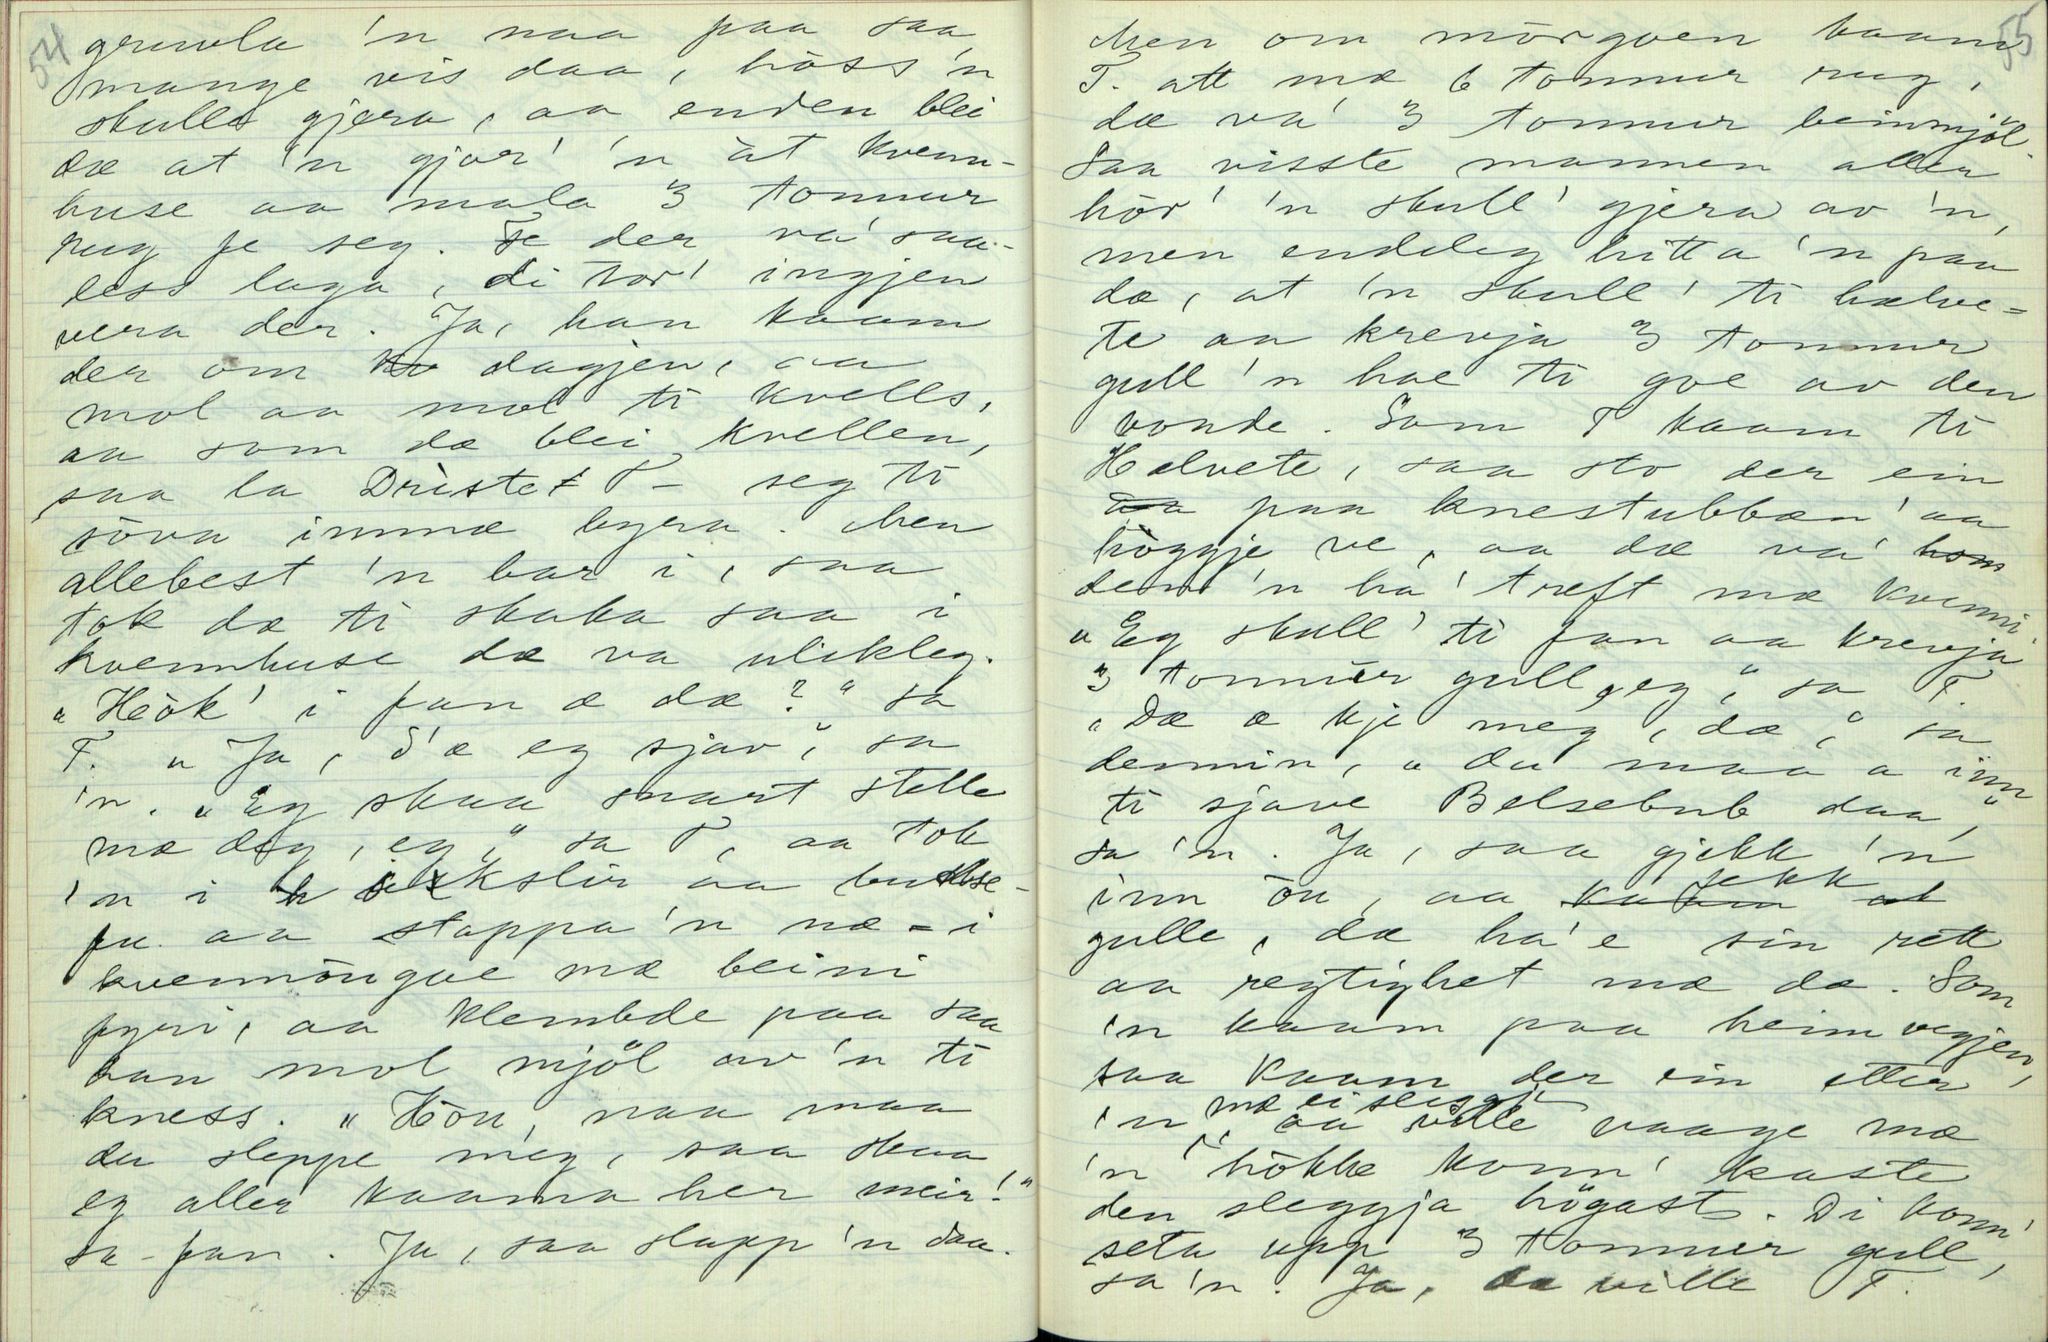 54
grundla 'n naa paa saa
mange vis daa, höss 'n
skulle gjera, aa enden blei
dæ at 'n gjor' 'n åt kvenn-
huse aa mala 3 tonnur
rug fe seg. Fe der va' saa-
less laga, di tor' ingjen
vera der. Ja, han kaam
der om dagjen, aa
mol aa mol ti kvells,
aa som dæ blei kvellen,
saa la Driste T - seg ti
söva innmæ byra. Men
allebest 'n bar i, saa
tok dæ ti skaka saa i
kvennhuse dæ va ulikleg.
"Hòk' i fan æ dæ?" sa
T. "Ja, d'æ eg sjav", sa
'n. "Eg skaa snart stelle
mæ deg, eg," sa T, aa tok
'n i kslir aa bukse-
fu aa stappa 'n næ-i
kvennöngue mæ beini
fyri, aa klembde paa saa
han mol mjöl av 'n ti
kness. "Hòu, naa maa
du sleppe meg, saa skaa
eg aller kaama her meir!"
sa-fan. Ja, saa slapp 'n daa.
55
Men om mörgven kaam
T. att mæ 6 tonnur rug,
dæ va' 3 tonnur beinmjöl.
Saa visste mannen aller
hör' 'n skull' gjera av 'n,
men endeleg hitta 'n paa
dæ, at 'n skull' ti hælve-
te aa krevja 3 tonnur
gull 'n hae ti goe av den
vonde. Som T kaam ti
Hælvete, saa sto der ein
aa paa knestubbæn' aa
höggje ve, aa dæ va' hom
dem 'n ha' treft mæ kvenni.
"Eg skull' ti fan aa krevja
3 tonnur gull, eg," sa T.
"Dæ æ kje meg, dæ," sa
dennin, "du maa a inn
ti sjave Belsebub daa,"
sa 'n. Ja, saa gjekk 'n
inn òu, aa kaam at fekk
gulle, dæ ha' e sin rett
aa regtighet mæ dæ. Som
'n kaam paa heimvegjen,
saa kaam der ein etter
'n mæ ei sleggje aa ville vaage mæ
'n hökke konn' kaste
den sleggja högast. Di konn'
seta upp 3 tonnur gull,
sa 'n. Ja, dæ ville T.